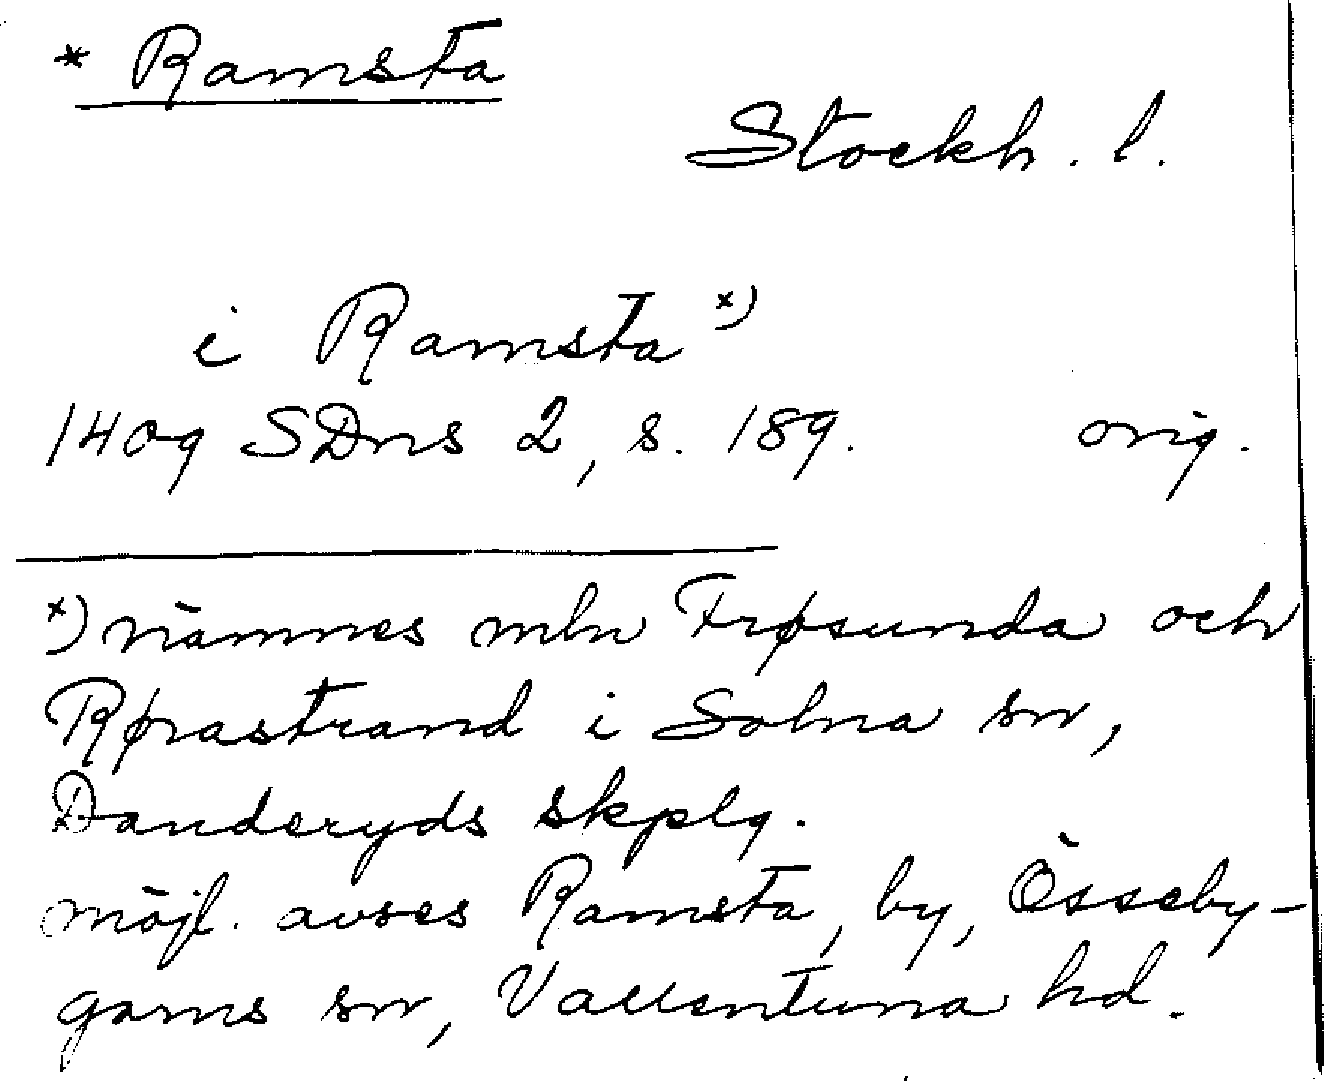 * Ramsta
Stockh. l.
i Ramsta x)
1409 SDns 2, s. 189. orig.
x) nämnes mln Frøsunda och
Rørastrand i Solna sn,
Danderyds skplg.
möjl. avses Ramsta, by, Össeby-
garns sn, Vallentuna hd.